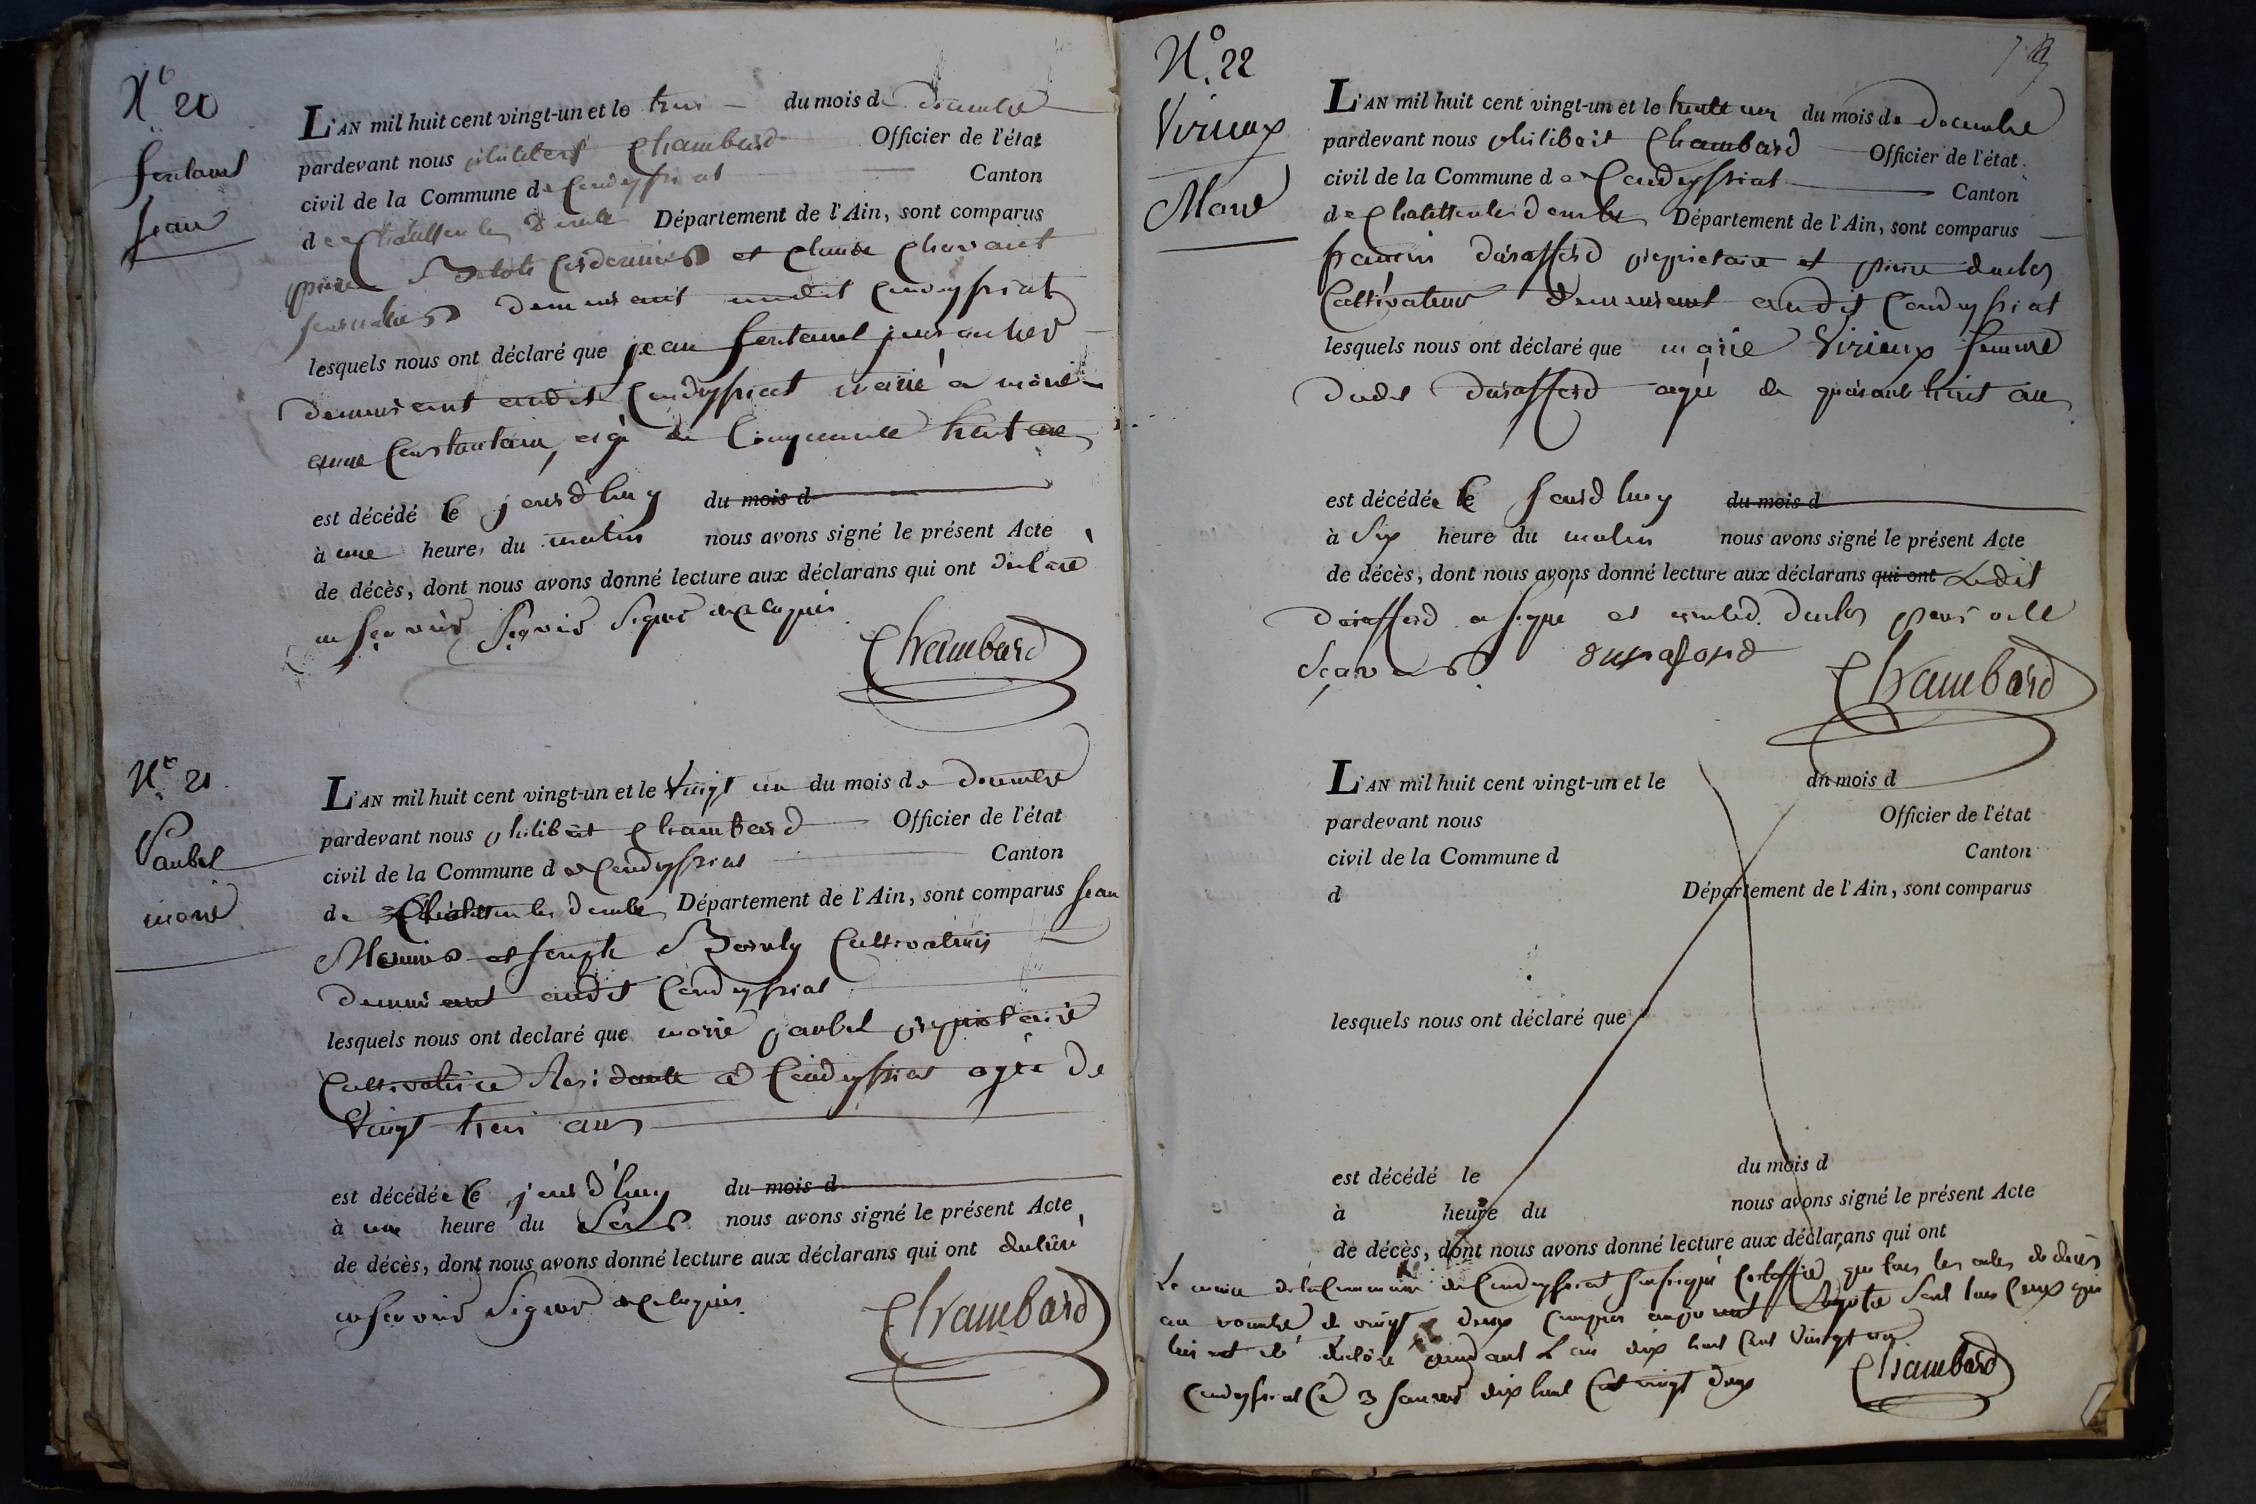 N.° 20
fontanel
jean
L'AN mil huit cent vingt-un et le trois du mois de décembre
pardevant nous philibert Chambard Officier de l'état
civil de la Commune de Condeyssiat Canton
de Chatillon les Dombes Département de l'Ain, sont comparus
pierre cordonnier et Claude Chavant
journalier demeurant audit Condeyssiat
lesquels nous ont déclaré que jean fontanel journalier
demeurant audit Condeyssiat marié a marie
anne Constantain, agé de Cinquante huit ans
est décédé le jourd'huy du mois d
à une heure du matin nous avons signé le présent Acte
de décès, dont nous avons donné lecture aux déclarans qui ont declaré
ne sçavoir signer de ce enquis
Chambard
N.° 21.
Paubel
marie
L'AN mil huit cent vingt-un et le Vingt un du mois de decembre
pardevant nous philibert Chambard Officier de l'état
civil de la Commune de Condeyssiat Canton
de Chatillon les Dombes Département de l'Ain, sont comparus jean
et joseph Cultivateurs
demeurant audit Condeyssiat
lesquels nous ont declaré que marie paubel proprietaire
Cultivatrice Residante a Condeyssiat agée de
Vingt trois ans
est décédée le jourd'huy du mois d
à une heure du Soir nous avons signé le présent Acte
de décès, dont nous avons donné lecture aux déclarans qui ont declaré
ne sçavoir Signer de ce enquis.
Chambard
N.° 22
Virieux
Marie
L'AN mil huit cent vingt-un et le trente un du mois de decembre
pardevant nous philibert Chambard Officier de l'état
civil de la Commune de Condeyssiat Canton
de Chatillon les Dombes Département de l'Ain, sont comparus
francois durafford propriétaire et pierre duclos
Cultivateur demeurant audit Condeyssiat
lesquels nous ont déclaré que marie Virieux femme
dudit durafford agée de quarante huit ans
est décédée le jourd'huy du mois d
à Six heure du matin nous avons signé le présent Acte
de décès, dont nous avons donné lecture aux déclarans qui ont Ledit
durafford a signé et non led. duclos pour ne le
Sçavoir. durafond
Chambard
L'AN mil huit cent vingt-un et le du mois d
pardevant nous Officier de l'état
civil de la Commune d Canton
d Département de l'Ain, sont comparus
lesquels nous ont déclaré que
est décédé le du mois d
à heure du nous avons signé le présent Acte
de décès, dont nous avons donné lecture aux déclarans qui ont
Le maire de la Commune de Condeyssiat soussigné Certiffie que tous les actes de décès
au nombre de vingt deux compris au present Registre sont tous Ceux qui
lui ont été déclaré pendant L'an dix huit Cent Vingt un
Condeyssiat Ce 3 janvier dix huit Cent vingt deux
Chambard